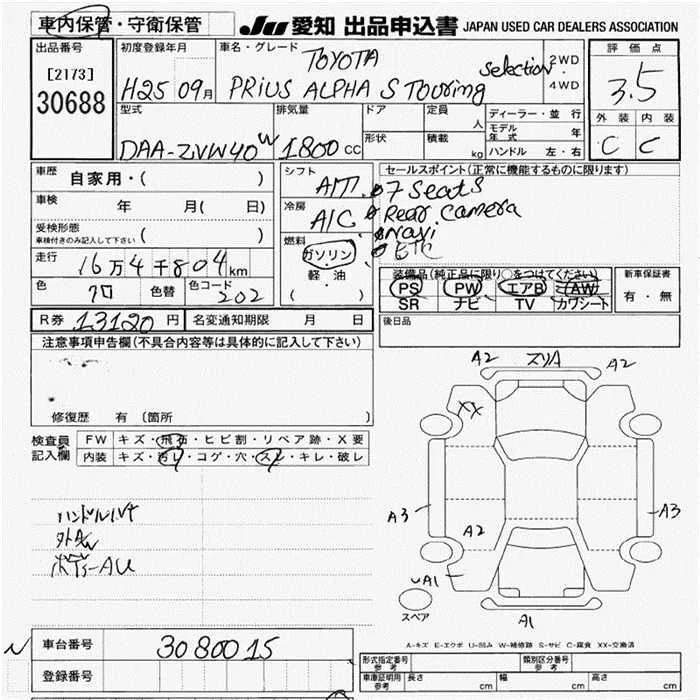 車内保管・守衛保管 JU 愛知 出品申込書 JAPAN USED CAR DEALERS ASSOCIATION
出品番号 初度登録年月 車名・グレード 評価点
[2173] TOYOTA 2WD
30688 H25 09月 PRIUS ALPHA S Touring Selection 4WD 3.5
型式 排気量 ドア 定員 人 ディーラー・並行 外装 内装
DAA-ZVW40W 1800cc 形状 積載 kg モデル年式 年 C C
ハンドル 左・右
車歴 自家用・( ) シフト AT セールスポイント(正常に機能するものに限ります)
7 Seats
車検 年 月( 日) 冷房 A/C Rear Camera
Navi
受検形態 車検付きのみ記入して下さい ( ) 燃料 ETC
走行 16万4千804km ガソリン 軽・油 ( )
装備品(純正品に限り○をつけてください) 新車保証書
色 色替 色コード 202 PS PW エアB AW 有・無
SR ナビ TV カワシート
R券 13120円 名変通知期限 月 日 後日品
注意事項申告欄(不具合内容等は具体的に記入して下さい)
修復歴 有 (箇所
検査員記入欄 FW キズ・飛石・ヒビ割・リペア跡・X要
内装 キズ・汚レ・コゲ・穴・スレ・キレ・破レ
A2 スリA A2
XX
A3 A3
A2
UA1
A1
スペア
ハンドル
ボディーAU
A-キズ E-エクボ U-凹み W-補修跡 S-サビ C-腐食 XX-交換済
車台番号 3080015
登録番号
形式指定番号 参考 類別区分番号 参考
車庫証明用 参考 長さ cm 幅 cm 高さ cm